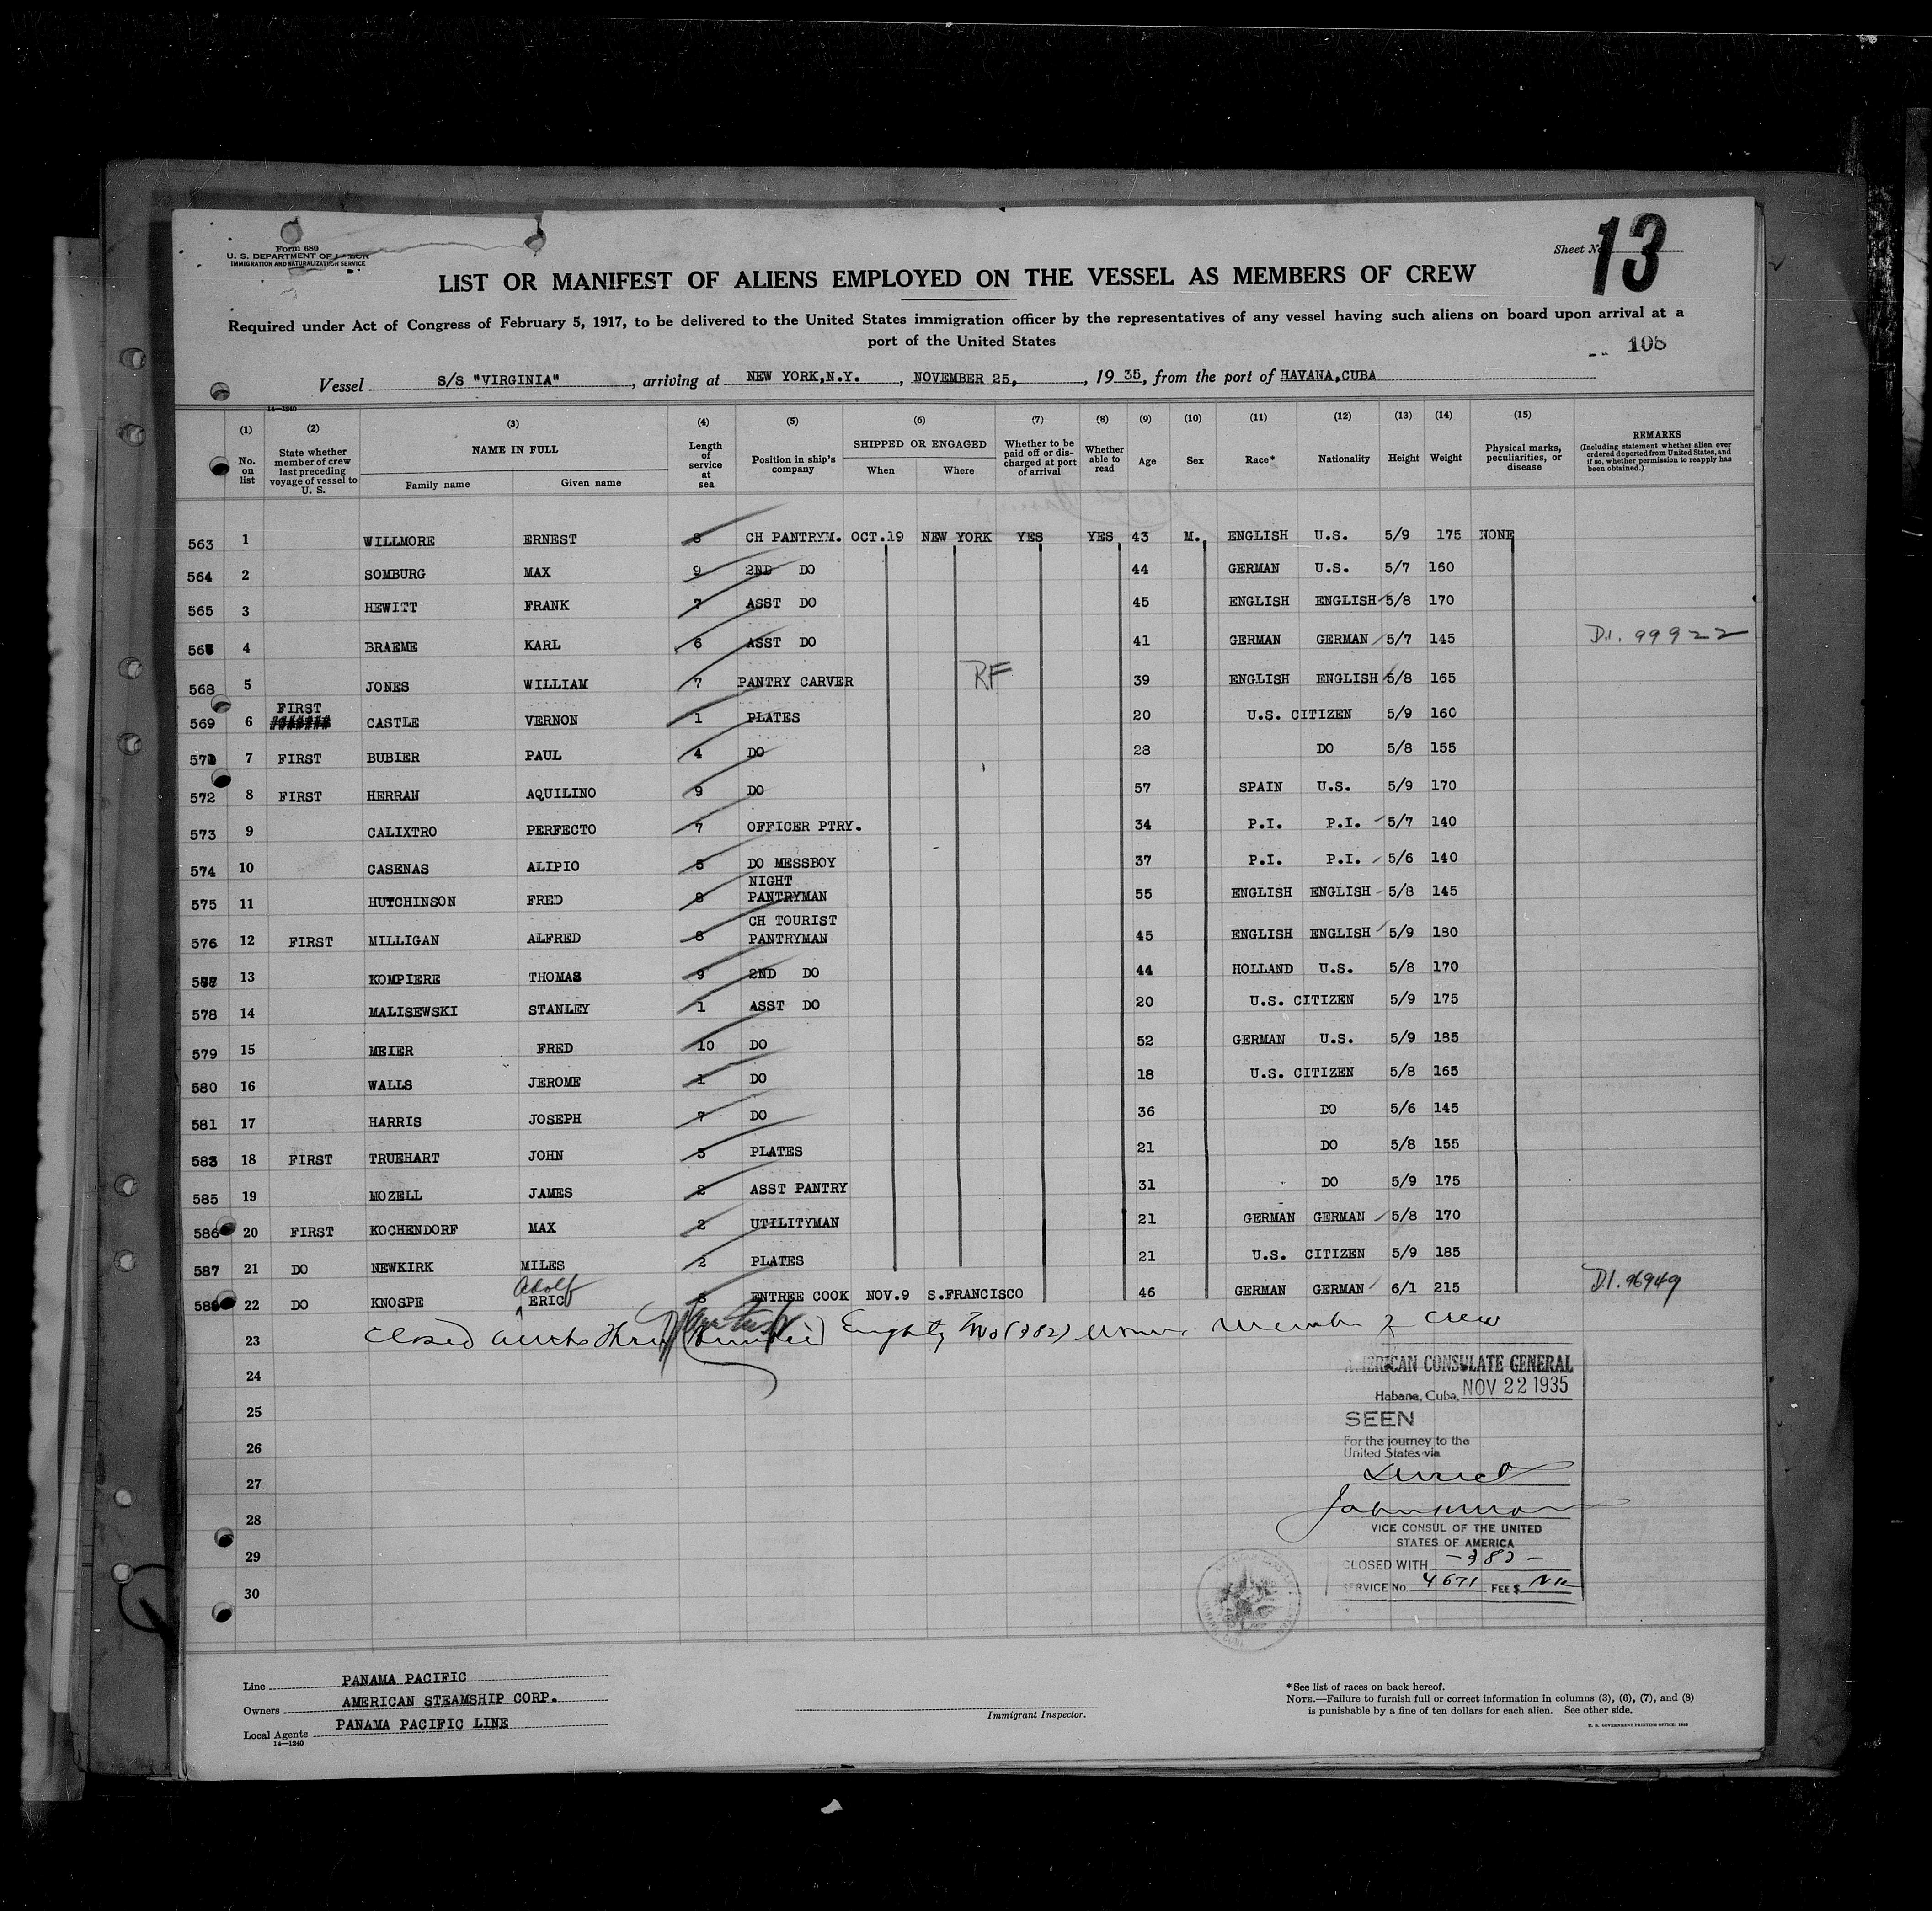 Form 680
U. S. DEPARTMENT OF LABOR
IMMIGRATION AND NATURALIZATION SERVICE
Sheet No. 13
LIST OR MANIFEST OF ALIENS EMPLOYED ON THE VESSEL AS MEMBERS OF CREW
Required under Act of Congress of February 5, 1917, to be delivered to the United States immigration officer by the representatives of any vessel having such aliens on board upon arrival at a
port of the United States
108
Vessel S/S "VIRGINIA", arriving at NEW YORK,N.Y., NOVEMBER 25, 1935, from the port of HAVANA,CUBA
14—1240
(1) (2) (3) (4) (5) (6) (7) (8) (9) (10) (11) (12) (13) (14) (15)
No. on list
State whether member of crew last preceding voyage of vessel to U. S.
NAME IN FULL
Family name
Given name
Length of service at sea
Position in ship's company
SHIPPED OR ENGAGED
When
Where
Whether to be paid off or discharged at port of arrival
Whether able to read
Age
Sex
Race*
Nationality
Height
Weight
Physical marks, peculiarities, or disease
REMARKS
(Including statement whether alien ever ordered deported from United States, and if so, whether permission to reapply has been obtained.)
563 1 WILLMORE ERNEST 8 CH PANTRYM. OCT.19 NEW YORK YES YES 43 M. ENGLISH U.S. 5/9 175 NONE
564 2 SOMBURG MAX 9 2ND DO 44 GERMAN U.S. 5/7 160
565 3 HEWITT FRANK 7 ASST DO 45 ENGLISH ENGLISH 5/8 170
4 BRAEME KARL 6 ASST DO 41 GERMAN GERMAN 5/7 145 D.I. 99922
568 5 JONES WILLIAM 7 PANTRY CARVER RF 39 ENGLISH ENGLISH 5/8 165
569 6 FIRST CASTLE VERNON 1 PLATES 20 U.S. CITIZEN 5/9 160
7 FIRST BUBIER PAUL 4 DO 28 DO 5/8 155
572 8 FIRST HERRAN AQUILINO 9 DO 57 SPAIN U.S. 5/9 170
573 9 CALIXTRO PERFECTO 7 OFFICER PTRY. 34 P.I. P.I. 5/7 140
574 10 CASENAS ALIPIO 5 DO MESSBOY 37 P.I. P.I. 5/6 140
575 11 HUTCHINSON FRED 8 NIGHT PANTRYMAN 55 ENGLISH ENGLISH 5/8 145
576 12 FIRST MILLIGAN ALFRED 8 CH TOURIST PANTRYMAN 45 ENGLISH ENGLISH 5/9 180
577 13 KOMPIERE THOMAS 9 2ND DO 44 HOLLAND U.S. 5/8 170
578 14 MALISEWSKI STANLEY 1 ASST DO 20 U.S. CITIZEN 5/9 175
579 15 MEIER FRED 10 DO 52 GERMAN U.S. 5/9 185
580 16 WALLS JEROME 1 DO 18 U.S. CITIZEN 5/8 165
581 17 HARRIS JOSEPH 7 DO 36 DO 5/6 145
583 18 FIRST TRUEHART JOHN 3 PLATES 21 DO 5/8 155
585 19 MOZELL JAMES 2 ASST PANTRY 31 DO 5/9 175
586 20 FIRST KOCHENDORF MAX 2 UTILITYMAN 21 GERMAN GERMAN 5/8 170
587 21 DO NEWKIRK MILES 2 PLATES 21 U.S. CITIZEN 5/9 185
588 22 DO KNOSPE Adolf ERIC 8 ENTREE COOK NOV.9 S.FRANCISCO 46 GERMAN GERMAN 6/1 215 D.I. 96949
23 Closed with Three Hundred Eighty Two (382) Members of Crew
24
25
26
27
28
29
30
AMERICAN CONSULATE GENERAL
Habana, Cuba, NOV 22 1935
SEEN
For the journey to the
United States via
Direct
VICE CONSUL OF THE UNITED
STATES OF AMERICA
CLOSED WITH -382-
SERVICE No. 4671 FEE $
Line PANAMA PACIFIC
Owners AMERICAN STEAMSHIP CORP.
Local Agents PANAMA PACIFIC LINE
14—1240
Immigrant Inspector.
*See list of races on back hereof.
NOTE.—Failure to furnish full or correct information in columns (3), (6), (7), and (8)
is punishable by a fine of ten dollars for each alien. See other side.